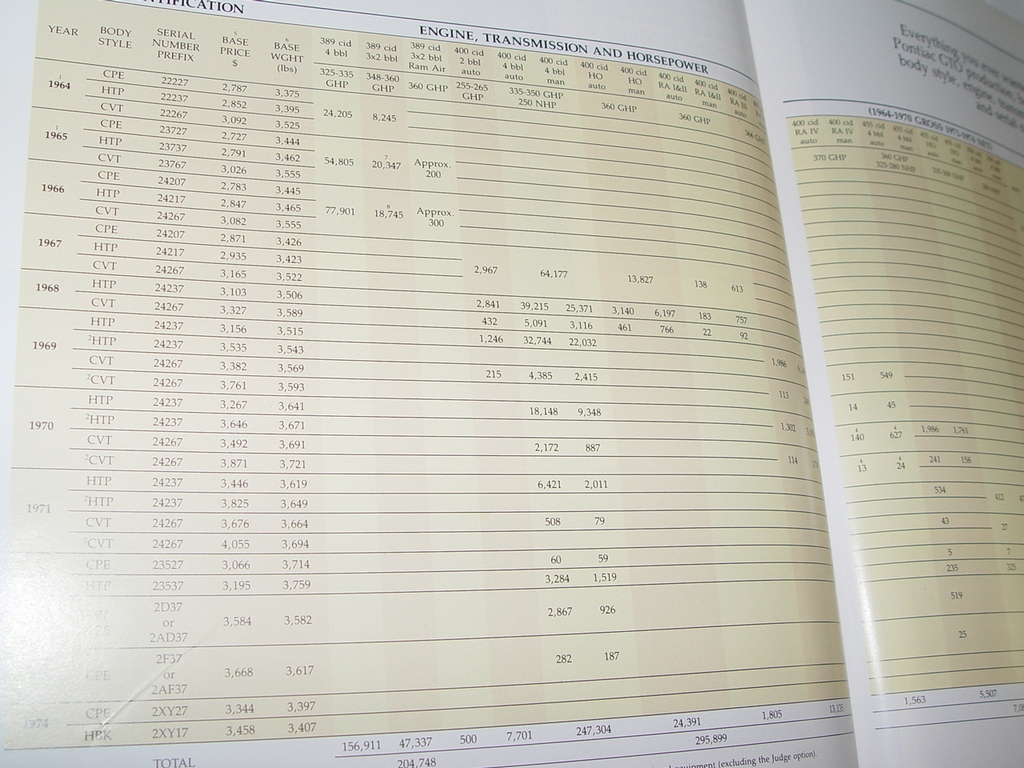 NTIFICATION
ENGINE, TRANSMISSION AND HORSEPOWER
YEAR BODY STYLE SERIAL NUMBER PREFIX 5 BASE PRICE $ 6 BASE WGHT (lbs) 389 cid 4 bbl 389 cid 3x2 bbl 389 cid 3x2 bbl Ram Air 400 cid 2 bbl auto 400 cid 4 bbl auto 400 cid 4 bbl man 400 cid HO auto 400 cid HO man 400 cid RA I&II auto 400 cid RA I&II man 400 cid RA III auto
325-335 GHP 348-360 GHP 360 GHP 255-265 GHP 335-350 GHP 250 NHP 360 GHP 360 GHP 366 GHP
1964 CPE 22227 2,787 3,375
HTP 22237 2,852 3,395 24,205 8,245
CVT 22267 3,092 3,525
1965 CPE 23727 2,727 3,444
HTP 23737 2,791 3,462 54,805 7 20,347 Approx. 200
CVT 23767 3,026 3,555
1966 CPE 24207 2,783 3,445
HTP 24217 2,847 3,465 77,901 8 18,745 Approx. 300
CVT 24267 3,082 3,555
1967 CPE 24207 2,871 3,426
HTP 24217 2,935 3,423 2,967 64,177 13,827 138 613
CVT 24267 3,165 3,522
1968 HTP 24237 3,103 3,506 2,841 39,215 25,371 3,140 6,197 183 757
CVT 24267 3,327 3,589 432 5,091 3,116 461 766 22 92
1969 HTP 24237 3,156 3,515 1,246 32,744 22,032
2HTP 24237 3,535 3,543 1,986
CVT 24267 3,382 3,569 215 4,385 2,415
2CVT 24267 3,761 3,593 113
1970 HTP 24237 3,267 3,641 18,148 9,348
2HTP 24237 3,646 3,671 1,302
CVT 24267 3,492 3,691 2,172 887
2CVT 24267 3,871 3,721 114
1971 HTP 24237 3,446 3,619 6,421 2,011
2HTP 24237 3,825 3,649
CVT 24267 3,676 3,664 508 79
2CVT 24267 4,055 3,694
CPE 23527 3,066 3,714 60 59
HTP 23537 3,195 3,759 3,284 1,519
2D37
or 3,584 3,582 2,867 926
2AD37
2F37
CPE or 3,668 3,617 282 187
2AF37
1974 CPE 2XY27 3,344 3,397
HBK 2XY17 3,458 3,407
TOTAL 156,911 47,337 500 7,701 247,304 24,391 1,805 13,135
204,748 295,899
equipment (excluding the Judge option).
Everything you ever
Pontiac GTO production,
body style, engine,
and serial
(1964-1970 GROSS
400 cid RA IV auto 400 cid RA IV man 455 cid 4 bbl auto
370 GHP 360 GHP 325-280 NHP
151 549
14 45
4 140 4 627 1,986 1,761
4 13 4 24 241 158
534 412
43 27
5 7
235 325
519
25
1,563 5,507